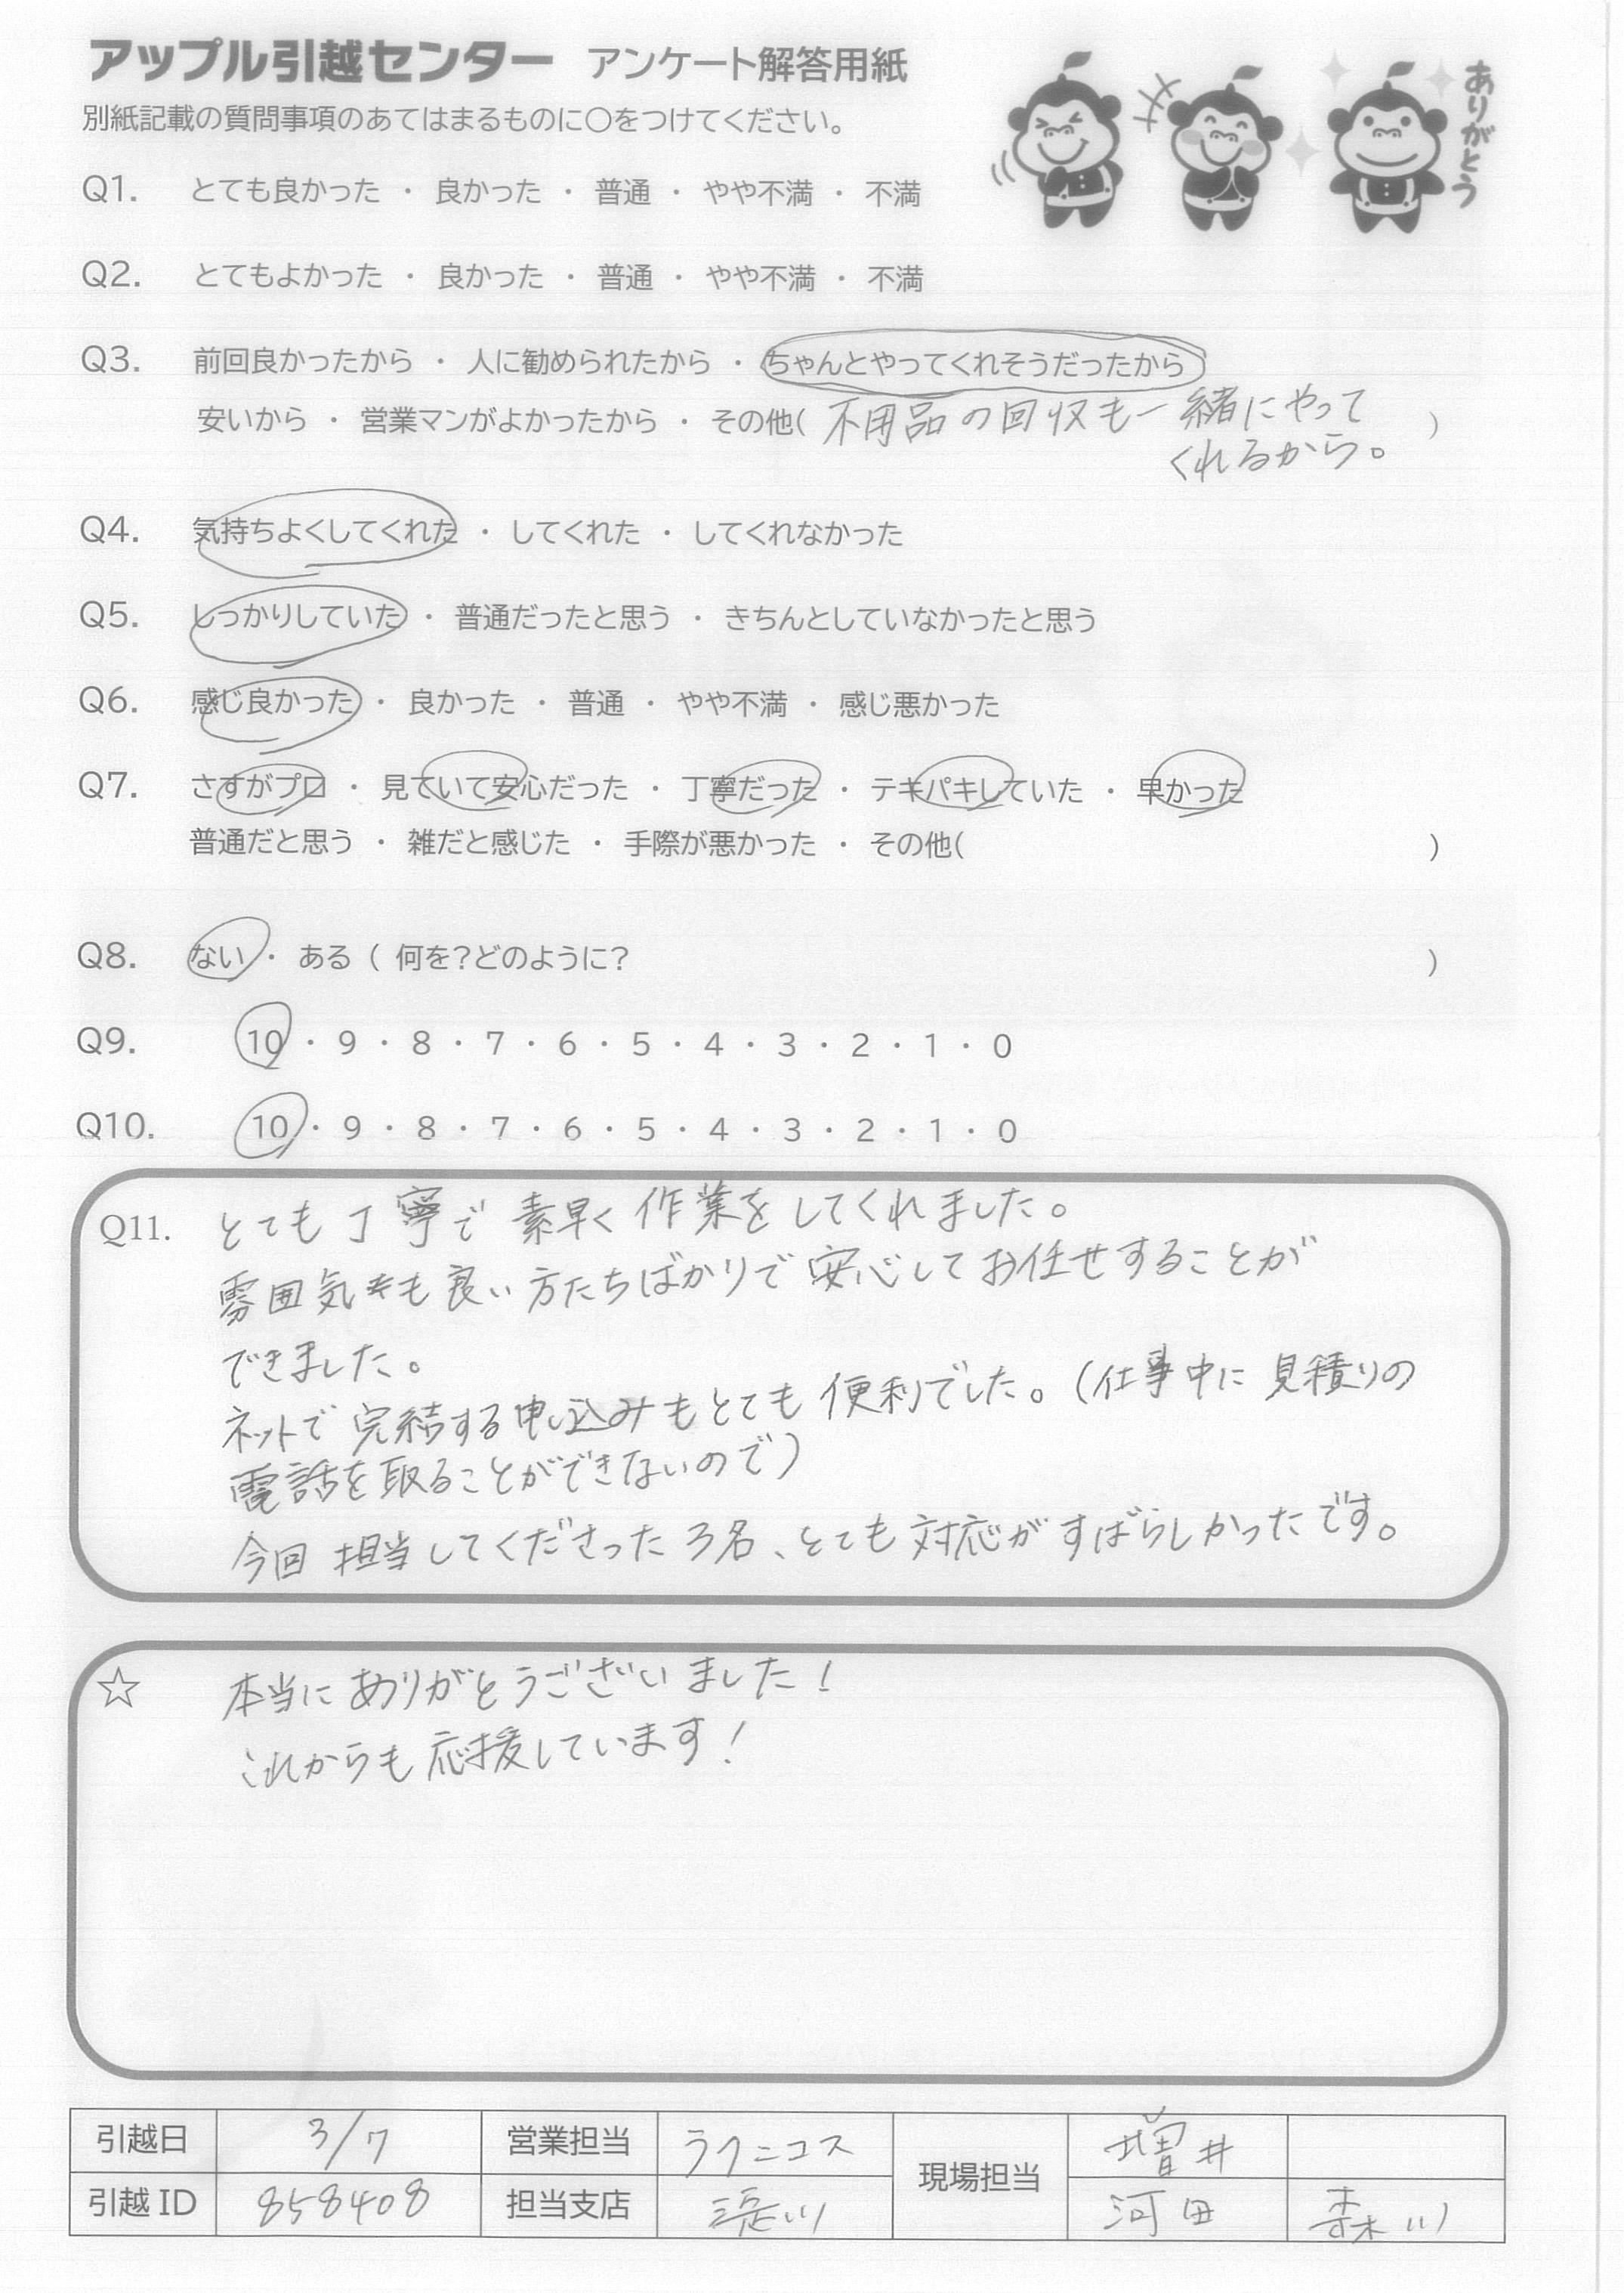 アップル引越センター アンケート解答用紙
ありがとう
別紙記載の質問事項のあてはまるものに○をつけてください。
Q1. とても良かった ・ 良かった ・ 普通 ・ やや不満 ・ 不満
Q2. とてもよかった ・ 良かった ・ 普通 ・ やや不満 ・ 不満
Q3. 前回良かったから ・ 人に勧められたから ・ ちゃんとやってくれそうだったから
安いから ・ 営業マンがよかったから ・ その他( 不用品の回収も一緒にやって )
くれるから。
Q4. 気持ちよくしてくれた ・ してくれた ・ してくれなかった
Q5. しっかりしていた ・ 普通だったと思う ・ きちんとしていなかったと思う
Q6. 感じ良かった ・ 良かった ・ 普通 ・ やや不満 ・ 感じ悪かった
Q7. さすがプロ ・ 見ていて安心だった ・ 丁寧だった ・ テキパキしていた ・ 早かった
普通だと思う ・ 雑だと感じた ・ 手際が悪かった ・ その他( )
Q8. ない ・ ある ( 何を?どのように? )
Q9. 10 ・ 9 ・ 8 ・ 7 ・ 6 ・ 5 ・ 4 ・ 3 ・ 2 ・ 1 ・ 0
Q10. 10 ・ 9 ・ 8 ・ 7 ・ 6 ・ 5 ・ 4 ・ 3 ・ 2 ・ 1 ・ 0
Q11. とても丁寧で素早く作業をしてくれました。
雰囲気も良い方たちばかりで安心してお任せすることが
できました。
ネットで完結する申し込みもとても便利でした。(仕事中に見積りの
電話を取ることができないので)
今回担当してくださった3名、とても対応がすばらしかったです。
☆ 本当にありがとうございました!
これからも応援しています!
引越日 3/7 営業担当 ラクニコス 現場担当 増井
引越ID 858408 担当支店 河田 森川